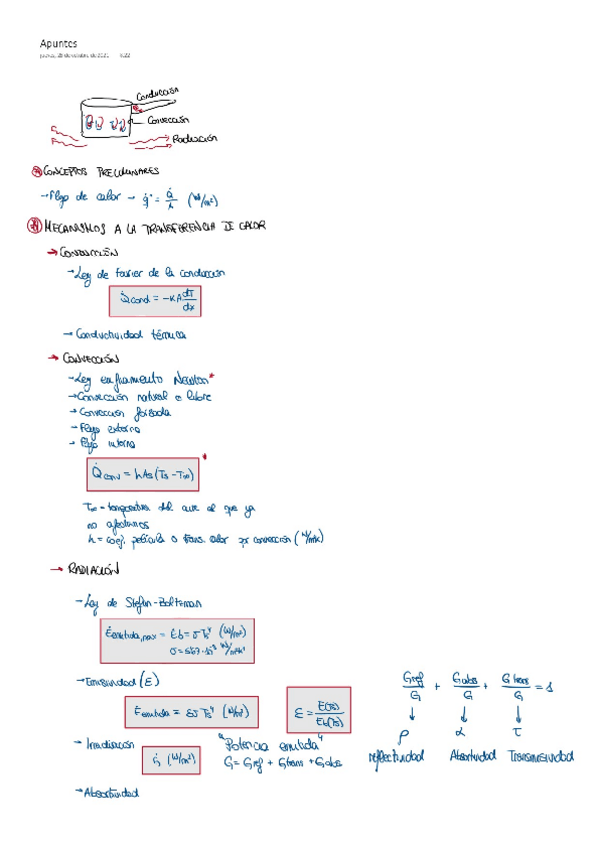 Apuntes
Conducción
Convección
Radiación
CONCEPTOS PRELIMINARES
→Flujo de calor → q̇ = Q̇/A (W/m²)
MECANISMOS A LA TRANSFERENCIA DE CALOR
→ CONDUCCIÓN
→Ley de Fourier de la conducción
Q̇cond = -KA dT/dx
→ Conductividad térmica
→ CONVECCIÓN
→Ley enfriamiento Newton*
→Convección natural o libre
→ Convección forzada
→ Flujo externo
→ Flujo interno
Q̇conv = hAs(Ts - T∞) *
T∞ = temperatura del aire al que ya
no afectamos
h = coef. película o trans. calor por convección (W/m²k)
→ RADIACIÓN
→Ley de Stefan-Boltzman
Ėemitida,max = Ėb = σTs⁴ (W/m²)
σ = 5'67·10⁻⁸ W/m²k⁴
→Emisividad (ε)
Ėemitida = εσTs⁴ (W/m²)
ε = E(Ts)/Eb(Ts)
Gref/G + Gabs/G + Gtrans/G = 1
↓ ↓ ↓
ρ α τ
reflectividad Absortividad Transmisividad
→ Irradiación
Ġ (W/m²)
"Potencia emitida"
G = Gref + Gtrans + Gabs
→ Absortividad